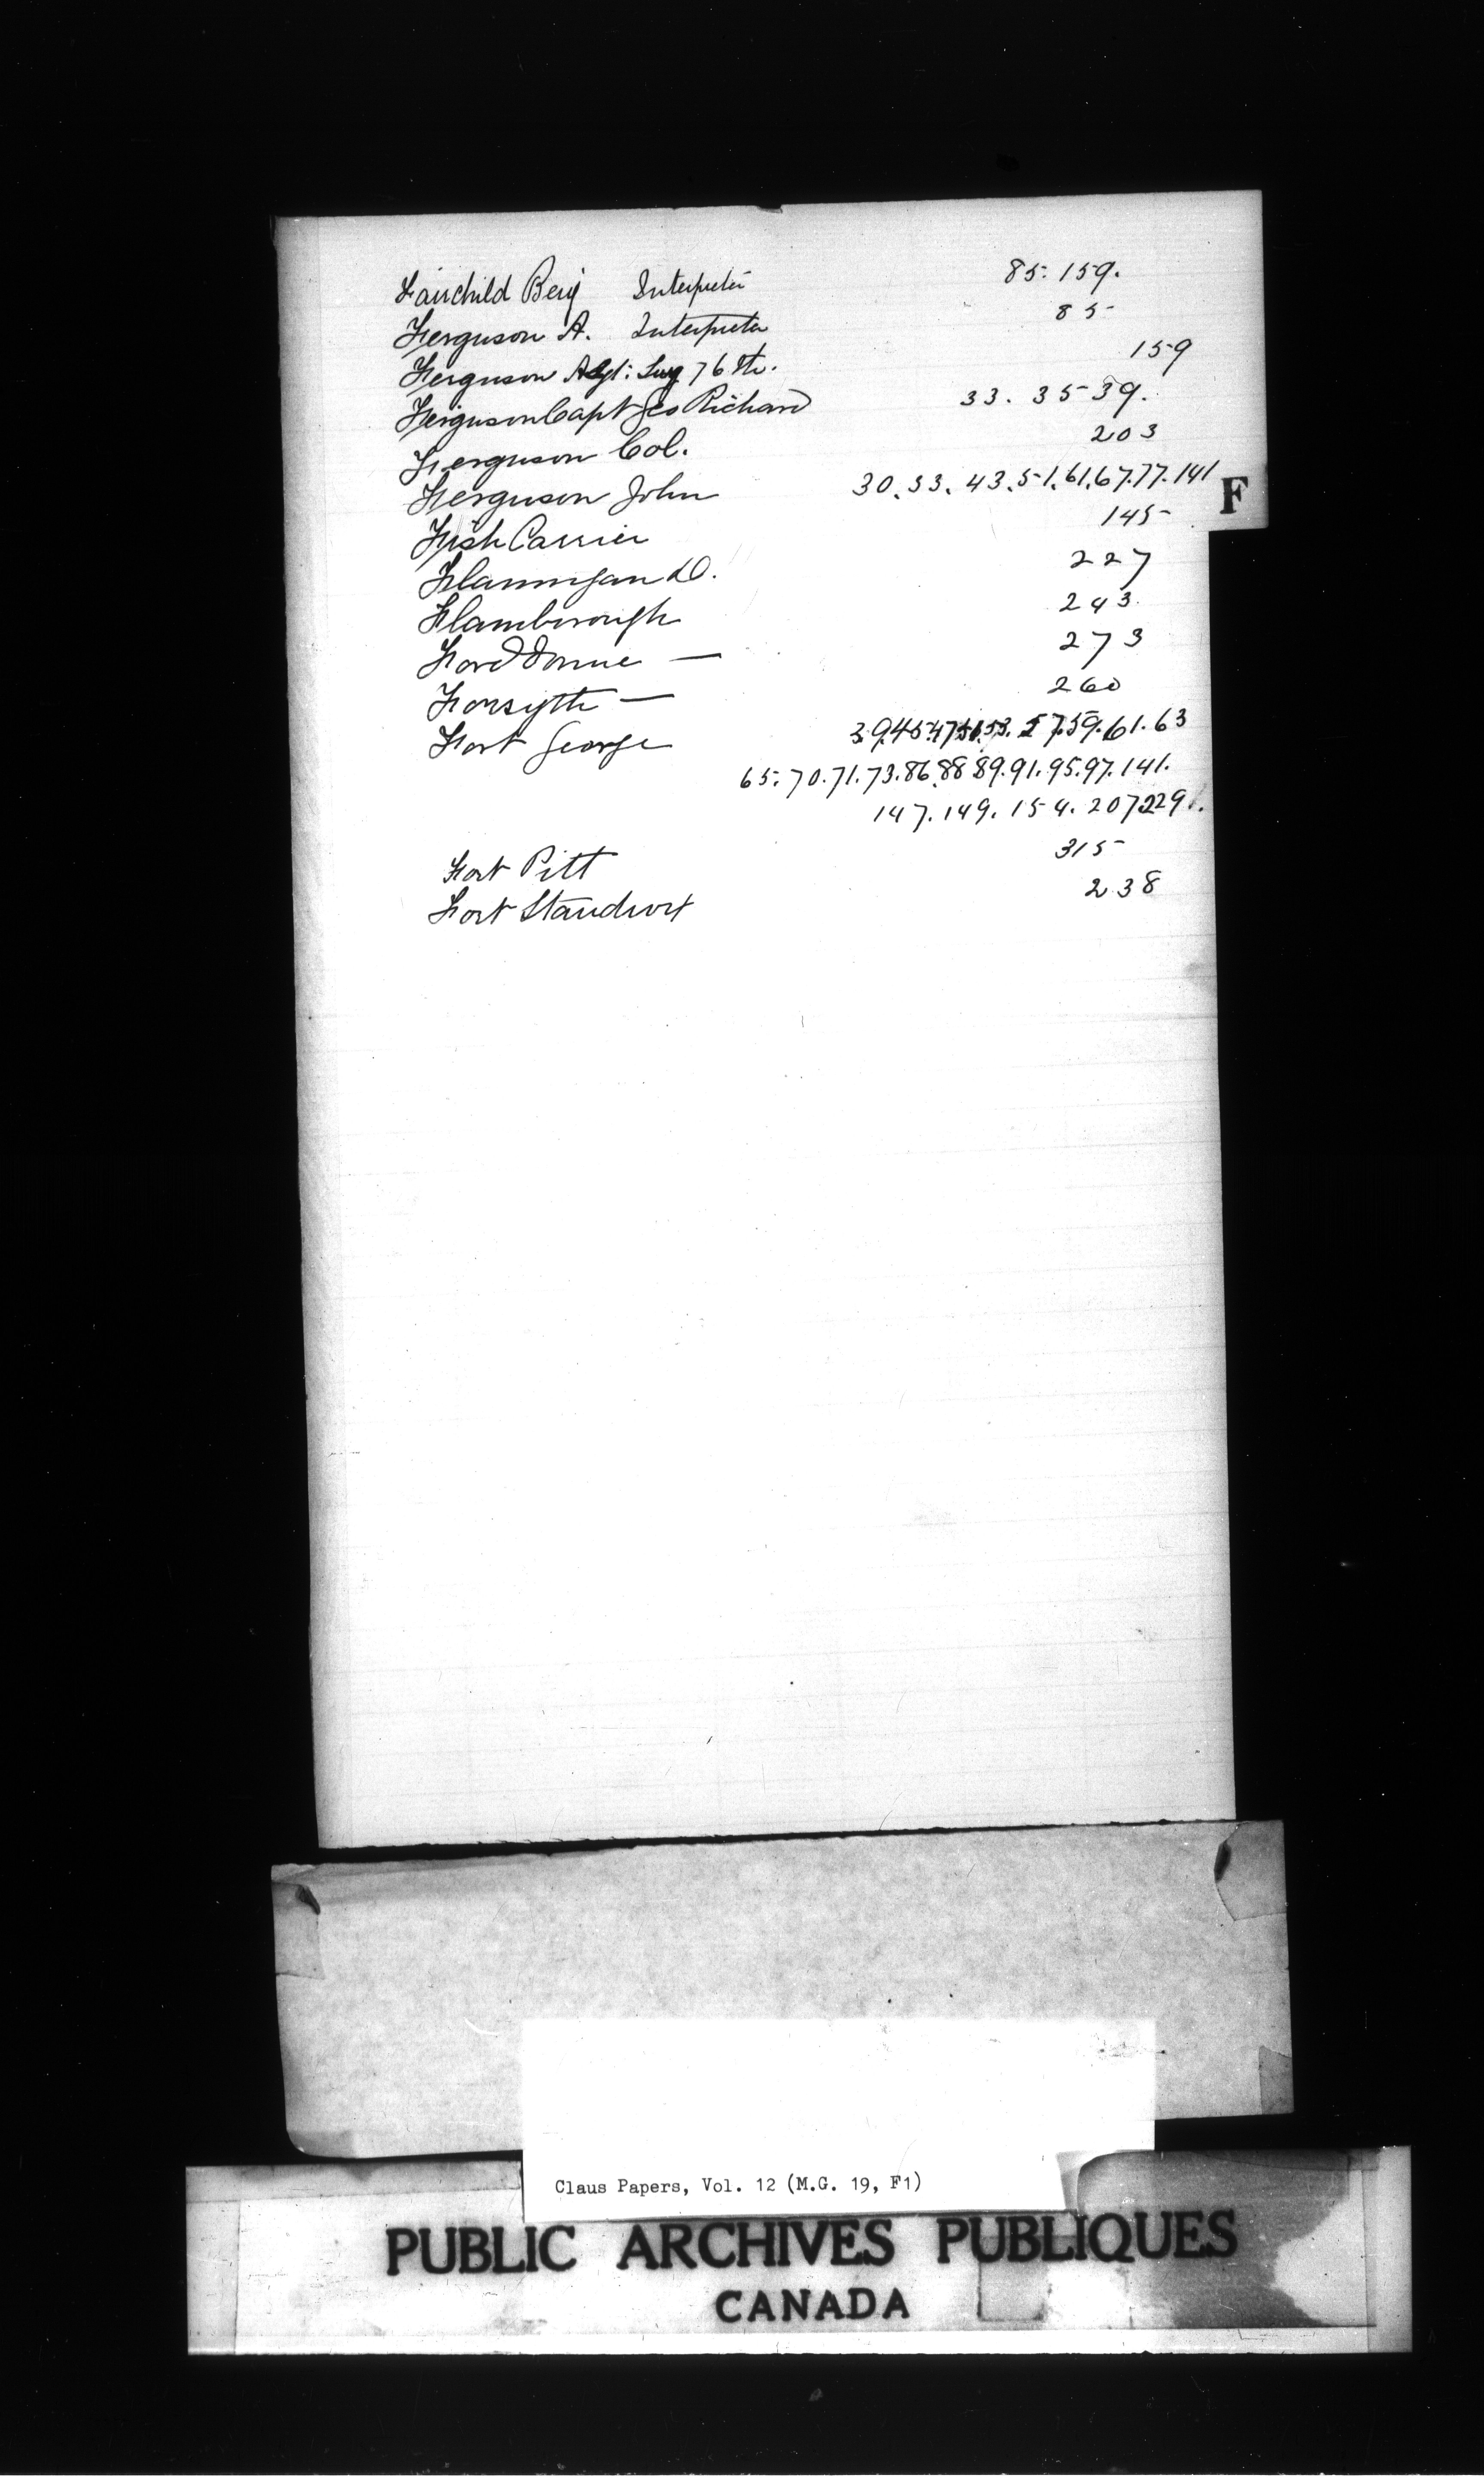 Fairchild Benj Interpreter 85. 159.
Ferguson A. Interpreter 85
Ferguson 76th. 159
Ferguson Capt Geo Richard 33. 35 39.
Ferguson Col. 203
Ferguson John 30. 33. 43. 51. 61. 67. 77. 141
F
Fish Carrier 145
Flannigan D. 227
Flamborough 243.
Ford — 273
Forsyth — 260
Fort George 39. 45. 47 51. 53. 57. 59. 61. 63
65. 70. 71. 73. 86. 88 89. 91. 95. 97. 141.
147. 149. 154. 207 229.
Fort Pitt 315
Fort 238
Claus Papers, Vol. 12 (M.G. 19, F1)
PUBLIC ARCHIVES PUBLIQUES
CANADA